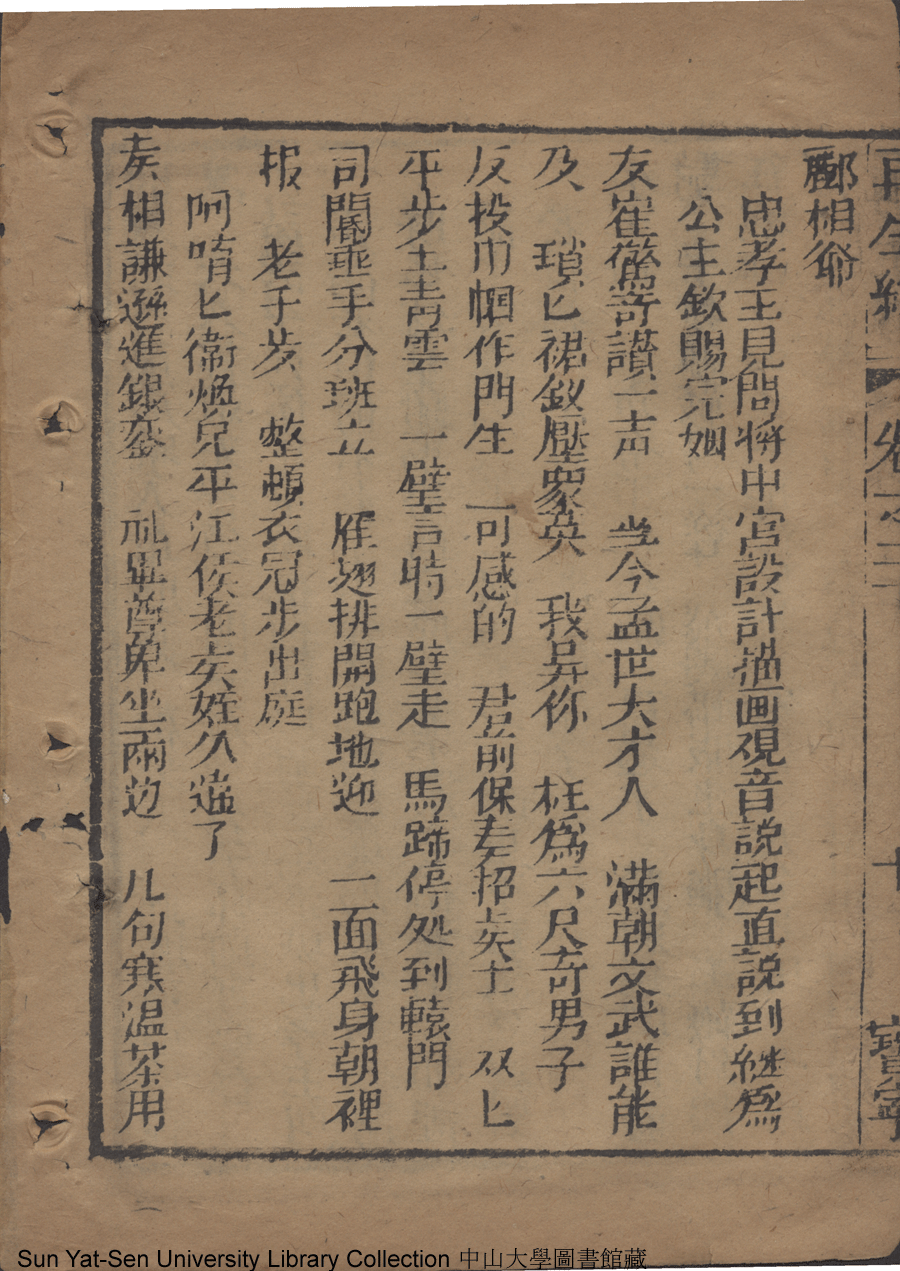 再生緣 卷之二 十 寶寧
酈相爺
忠孝王見問將中宮設計描画观音説起直説到継為
公主欽賜完姻
友崔驚奇讃一声 当今孟世大才人 滿朝文武誰能
及 瑣匕裙釵壓衆英 我与你 枉為六尺奇男子
反投巾幗作門生 可感的 君前保奏招矣士 双匕
平步上青雲 一壁言時一壁走 馬蹄停処到轅門
司閽垂手分班立 雁翅排開跑地迎 一面飛身朝裡
报 老千歩 整頓衣冠歩出庭
阿唷匕衞煥兒平江侯老矣姪久違了
矣相謙遜進銀銮 礼畢尊卑坐兩边 几句寒温茶用
Sun Yat-Sen University Library Collection 中山大學圖書館藏